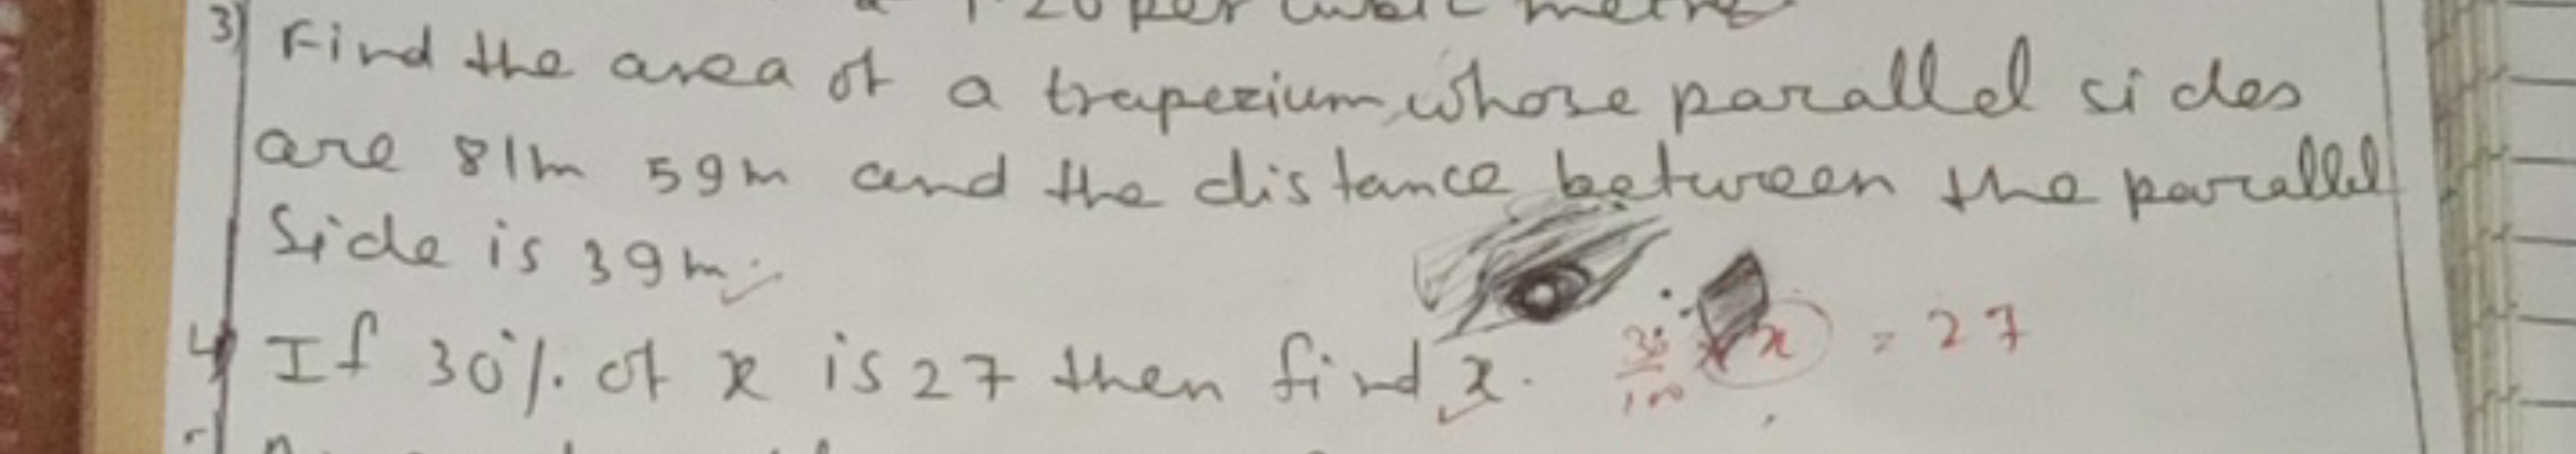 1.20 per cubic metre
3) Find the area of a trapezium, whose parallel sides
are 81m 59m and the distance between the parallel
Side is 39m.
4) If 30% of x is 27 then find x. 30/100 × x = 27